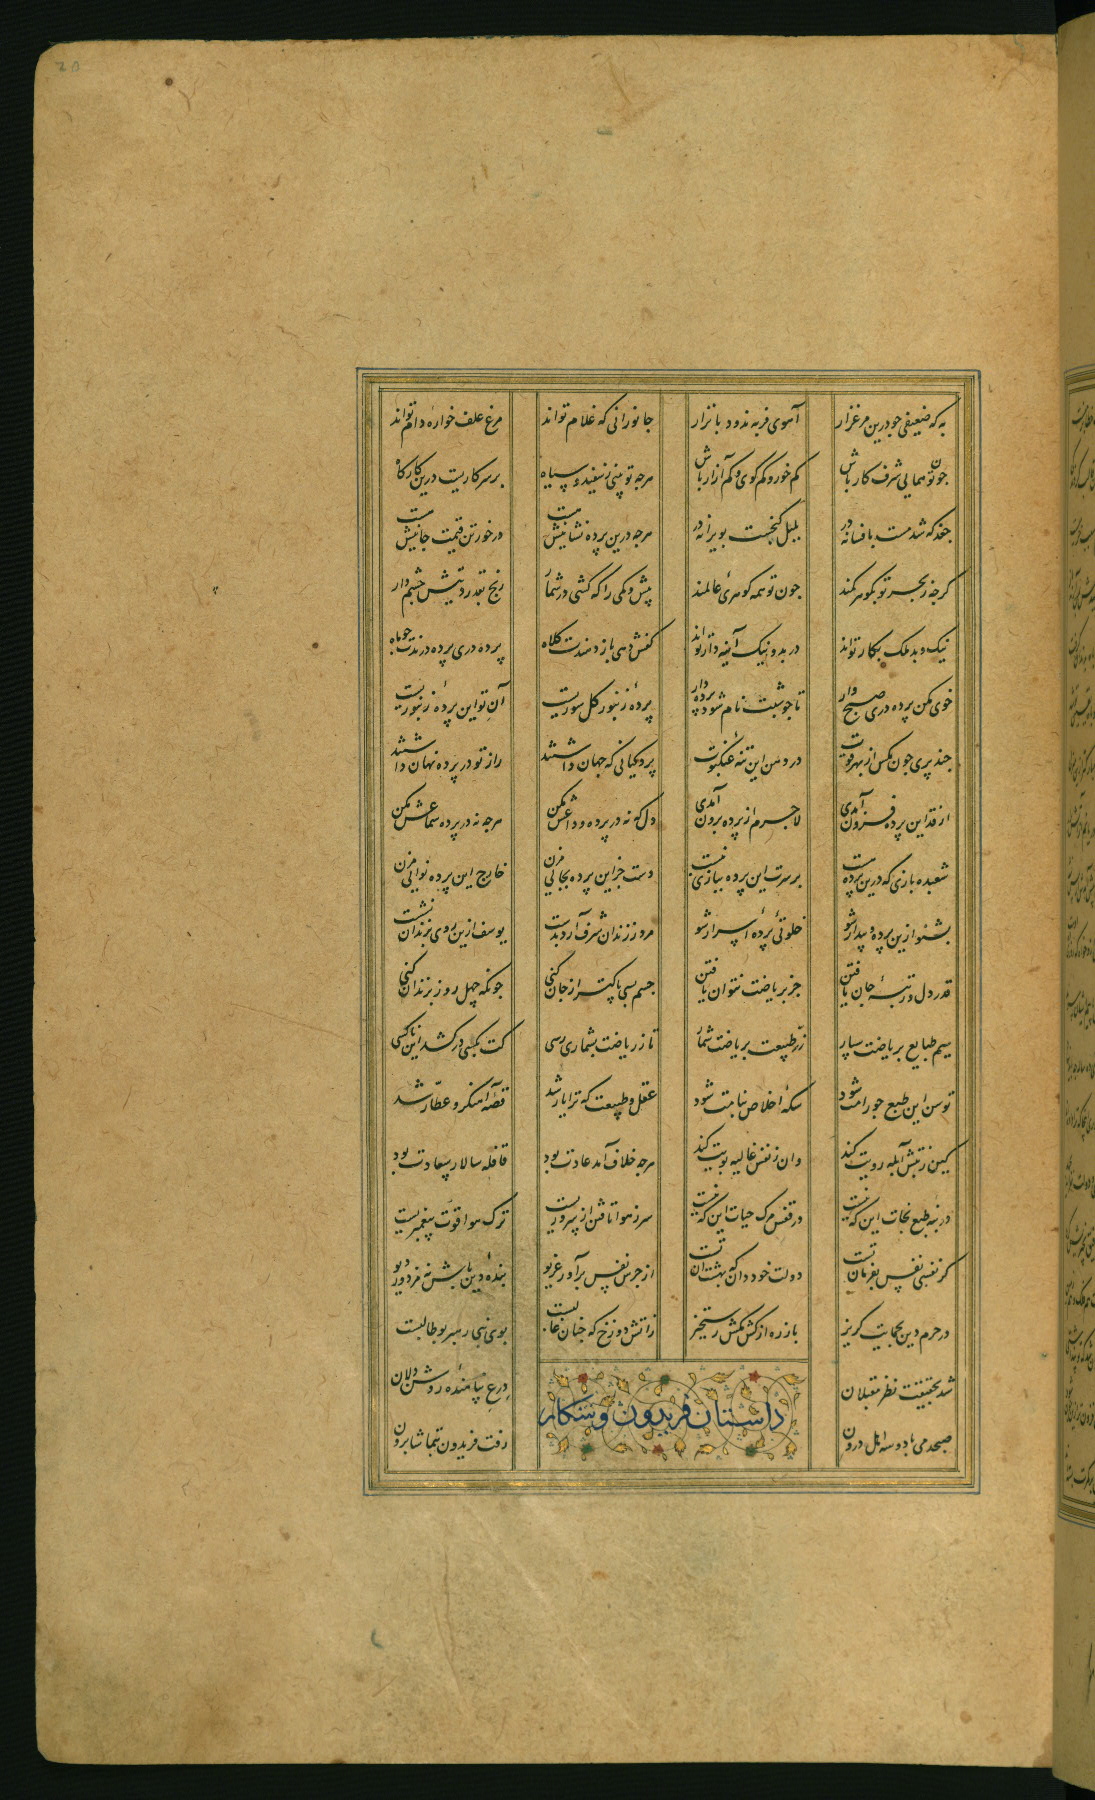 به که ضعیفی جو درین مرغزار آهوی فربه ندود با نزار جانورانی که غلام تواند مرغ علف خواره دام تواند
جون تو همایی شرف کار باش کم خور و کم گوی و کم آزار باش هرجه تو بینی ز سفید و سیاه بر سر کاریست درین کارگاه
جغد که شد مست بافسانه در بلبل گنجست بویرانه در هرجه درین پرده نشانیش هست درخور تن قیمت جانیش هست
گرجه ز بحر تو بگوهر کمند جون تو همه گوهری عالمند بیش و کمی را که کشی در شمار رنج بقدر دیتش چشم دار
نیک و بد ملک بکار تواند در بد و نیک آینه دار تواند کفش دهی باز دهندت کلاه پرده دری پرده درندت جو ماه
خوی مکن پرده دری صبح وار تا جو شبت نام شود پرده دار پردهٔ زنبور گل سوریست آن تو این پردهٔ زنبوریست
جند پری جون مگس از بهر قوت در دهن این تنهٔ عنکبوت پردگیانی که جهان داشتند راز تو در پرده نهان داشتند
از قد این پرده فزون آمدی لاجرم از پرده برون آمدی دل که نه در پرده وداعش مکن هرجه نه در پرده سماعش مکن
شعبده بازی که درین پرده هست بر سرت این پرده ببازی نیست دست جز این پرده بجایی مزن خارج این پرده نوایی مزن
بشنو ازین پرده و بیدار شو خلوتی پردهٔ اسرار شو مرد ز زندان شرف آرد بدست یوسف ازین روی بزندان نشست
قدر دل و رتبهٔ جان یافتن جز بریاضت نتوان یافتن جسم بسی پاکتر از جان کنی جونکه جهل روز بزندان کنی
سیم طبایع بریاضت سپار زرّ طبیعت بریاضت شمار تا ز ریاضت بشماری رسی کت بکسی درکشد این ناکسی
توسن این طبع جو رامت شود سکهٔ اخلاص بنامت شود عقل و طبیعت که ترا یار شد قصهٔ آهنگر و عطّار شد
کین ز تبش آبله رویت کند وان ز نفس غالیه بویت کند هرجه خلاف آمد عادت بود قافله سالار سعادت بود
در بنهٔ طبع نجات این کیست در قفس مرگ حیات این کیست سر ز هوا تافتن از سروریست ترک هوا قوت پیغمبریست
گر نفسی نفس بفرمان تست دولت خود دان که بهشت آن تست از جرس نفس برآور غریو بندهٔ دین باش نه مزدور دیو
در حرم دین بحمایت گریز باز ره از کش مکش رستخیز زاتش دوزخ که جنان غالبست بوی نبی رهبر بوطالبست
شد بحقیقت نظر مقبلان درع پناهندهٔ روشن دلان
داستان فریدون و شکار
صبحدمی با دو سه اهل درون رفت فریدون بتماشا برون